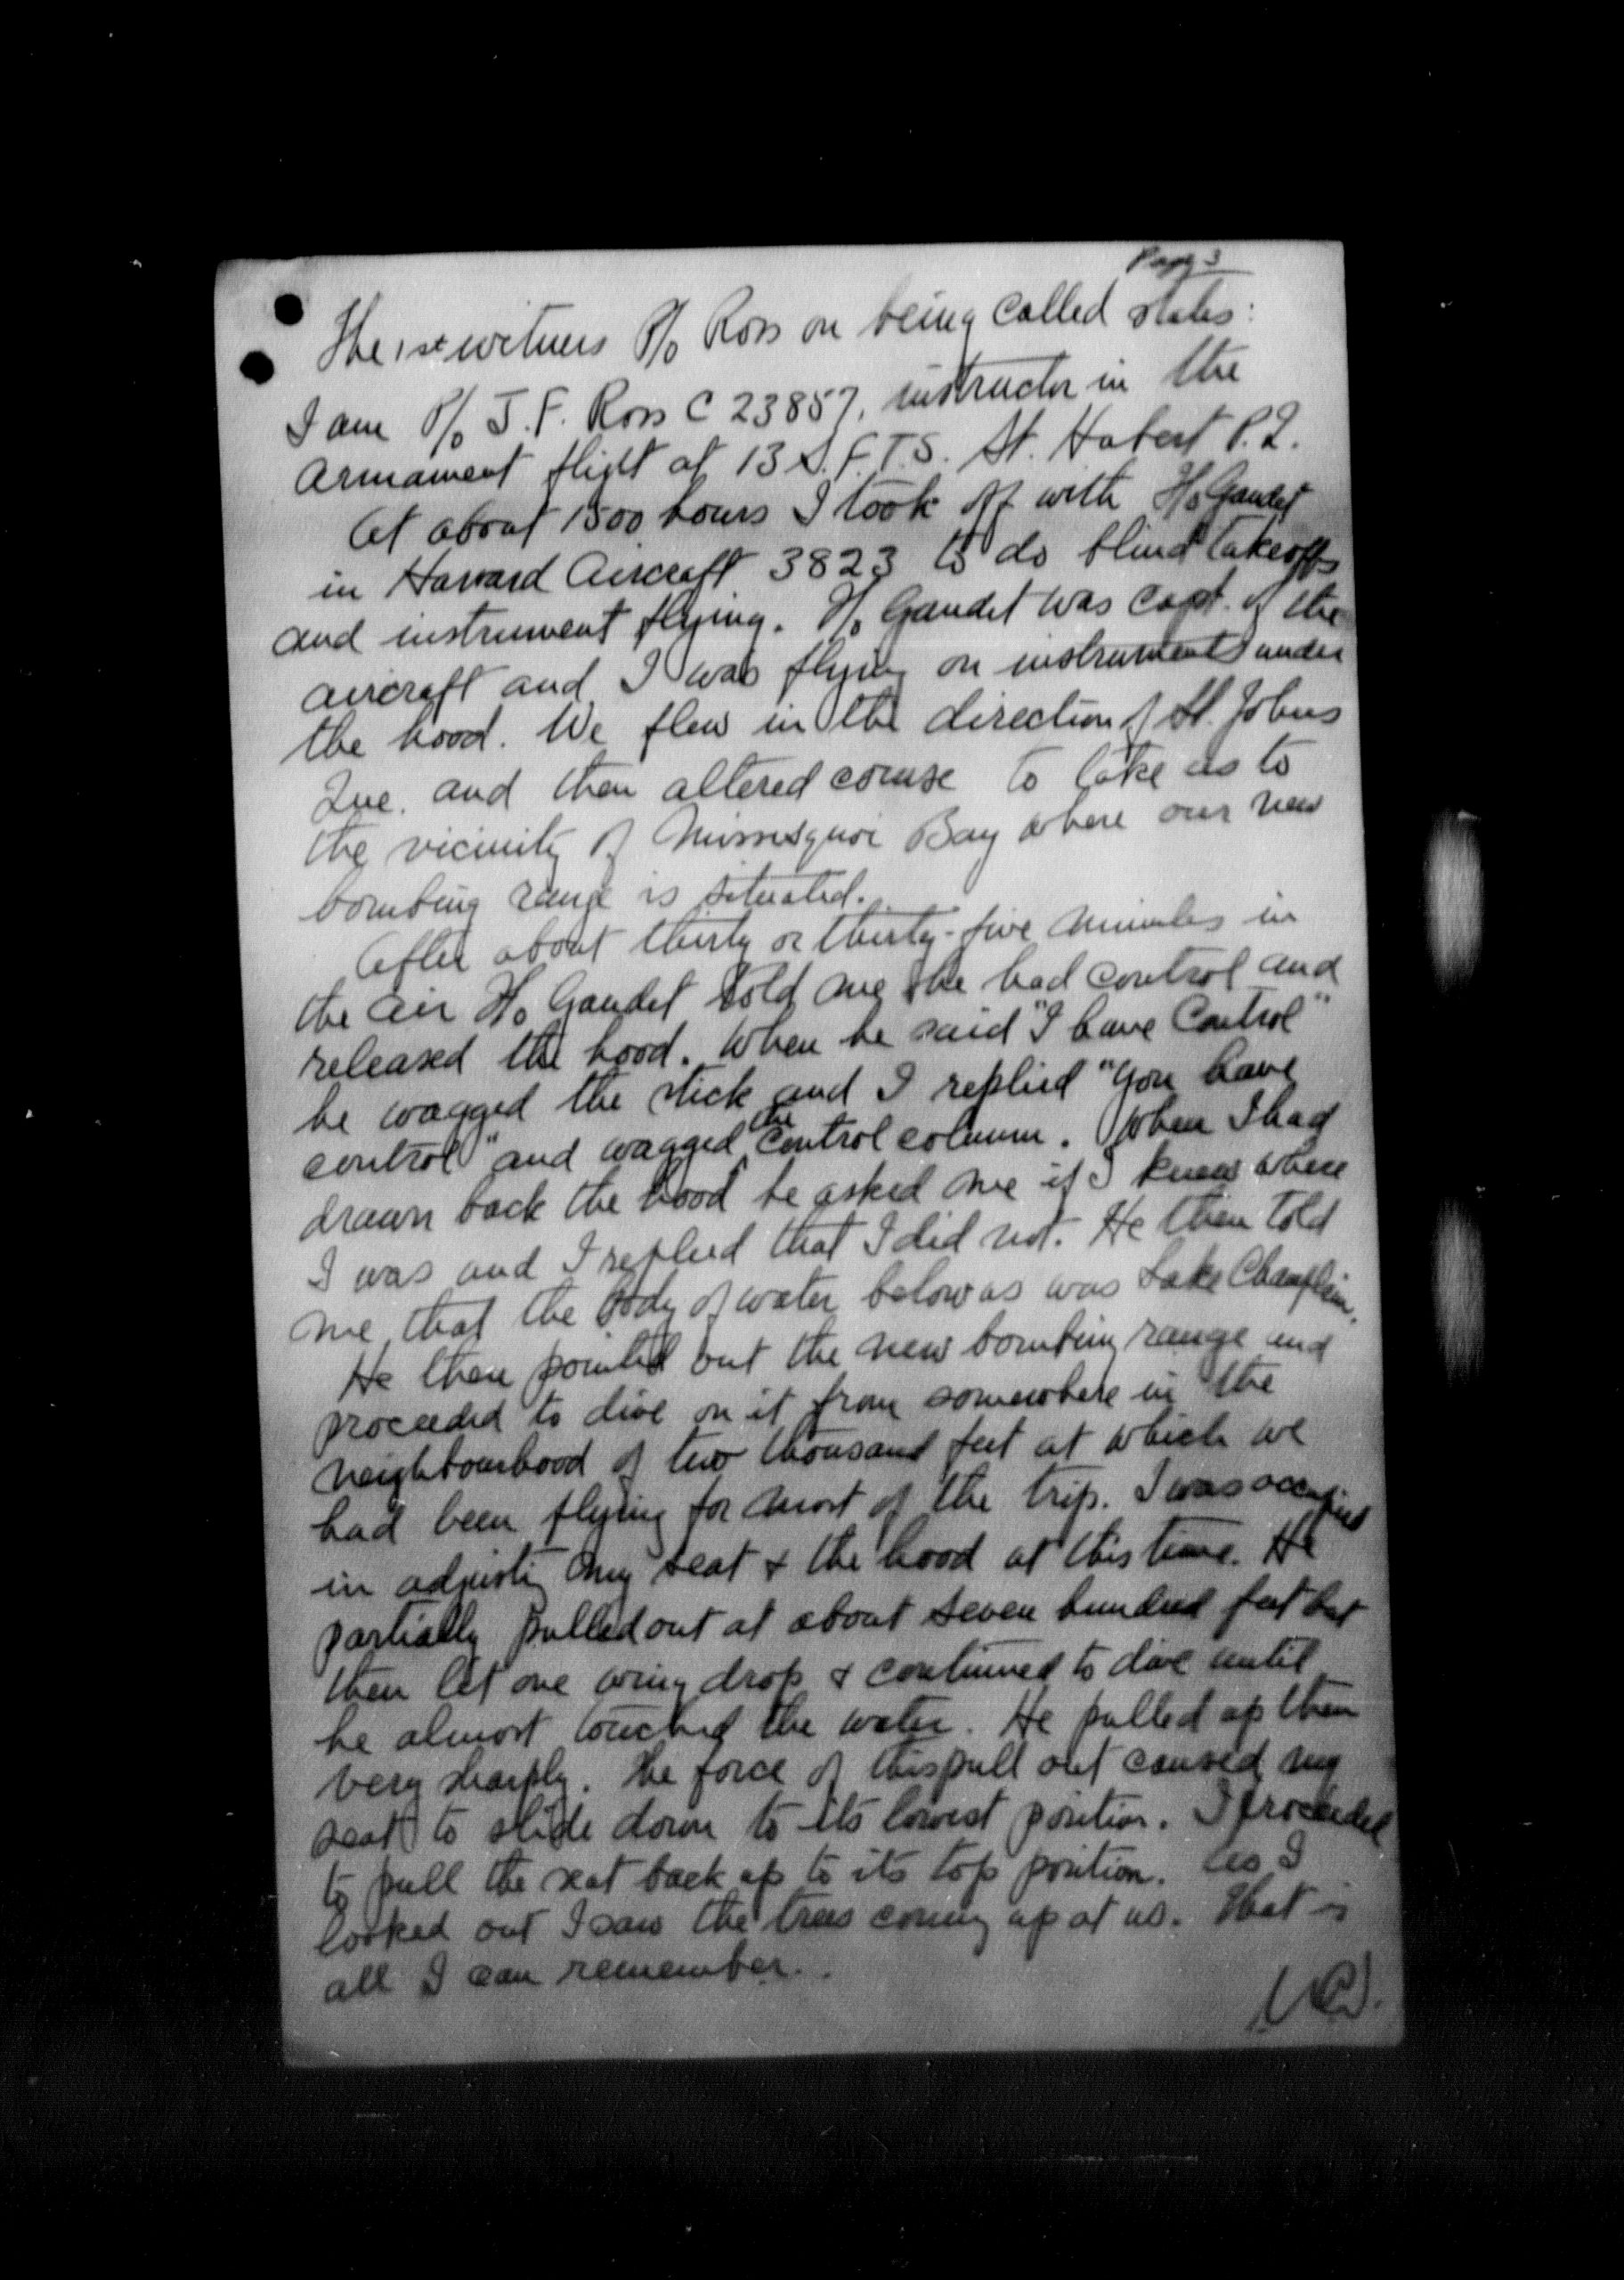 Page 3
The 1st witness P/O Ross on being called states:
I am P/O J. F. Ross C 23857, instructor in the
armament flight at 13 S.F.T.S. St. Hubert P.Q.
At about 1500 hours I took off with F/O Gaudet
in Harvard Aircraft 3823 to do blind takeoffs
and instrument flying. F/O Gaudet was Capt. of the
aircraft and I was flying on instruments under
the hood. We flew in the direction of St. Johns
Que. and then altered course to take us to
the vicinity of Missisquoi Bay where our new
bombing range is situated.
After about thirty or thirty-five minutes in
the air F/O Gaudet told me he had control and
released the hood. When he said "I have Control"
he wagged the stick and I replied "You have
control" and wagged the control column. When I had
drawn back the hood he asked me if I knew where
I was and I replied that I did not. He then told
me that the body of water below us was Lake Champlain.
He then pointed out the new bombing range and
proceeded to dive on it from somewhere in the
neighbourhood of two thousand feet at which we
had been flying for most of the trip. I was occupied
in adjusting my seat & the hood at this time. He
partially pulled out at about seven hundred feet but
then let one wing drop & continued to dive until
he almost touched the water. He pulled up then
very sharply. The force of this pull out caused my
seat to slide down to its lowest position. I proceeded
to pull the seat back up to its top position. As I
looked out I saw the trees coming up at us. That is
all I can remember.